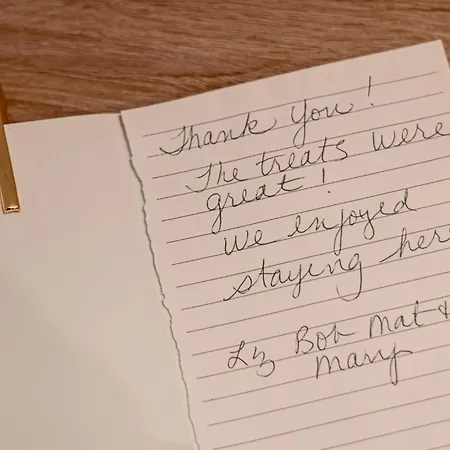 Thank You!
The treats were
great!
We enjoyed
staying here
Liz Bob Mat &
Mary